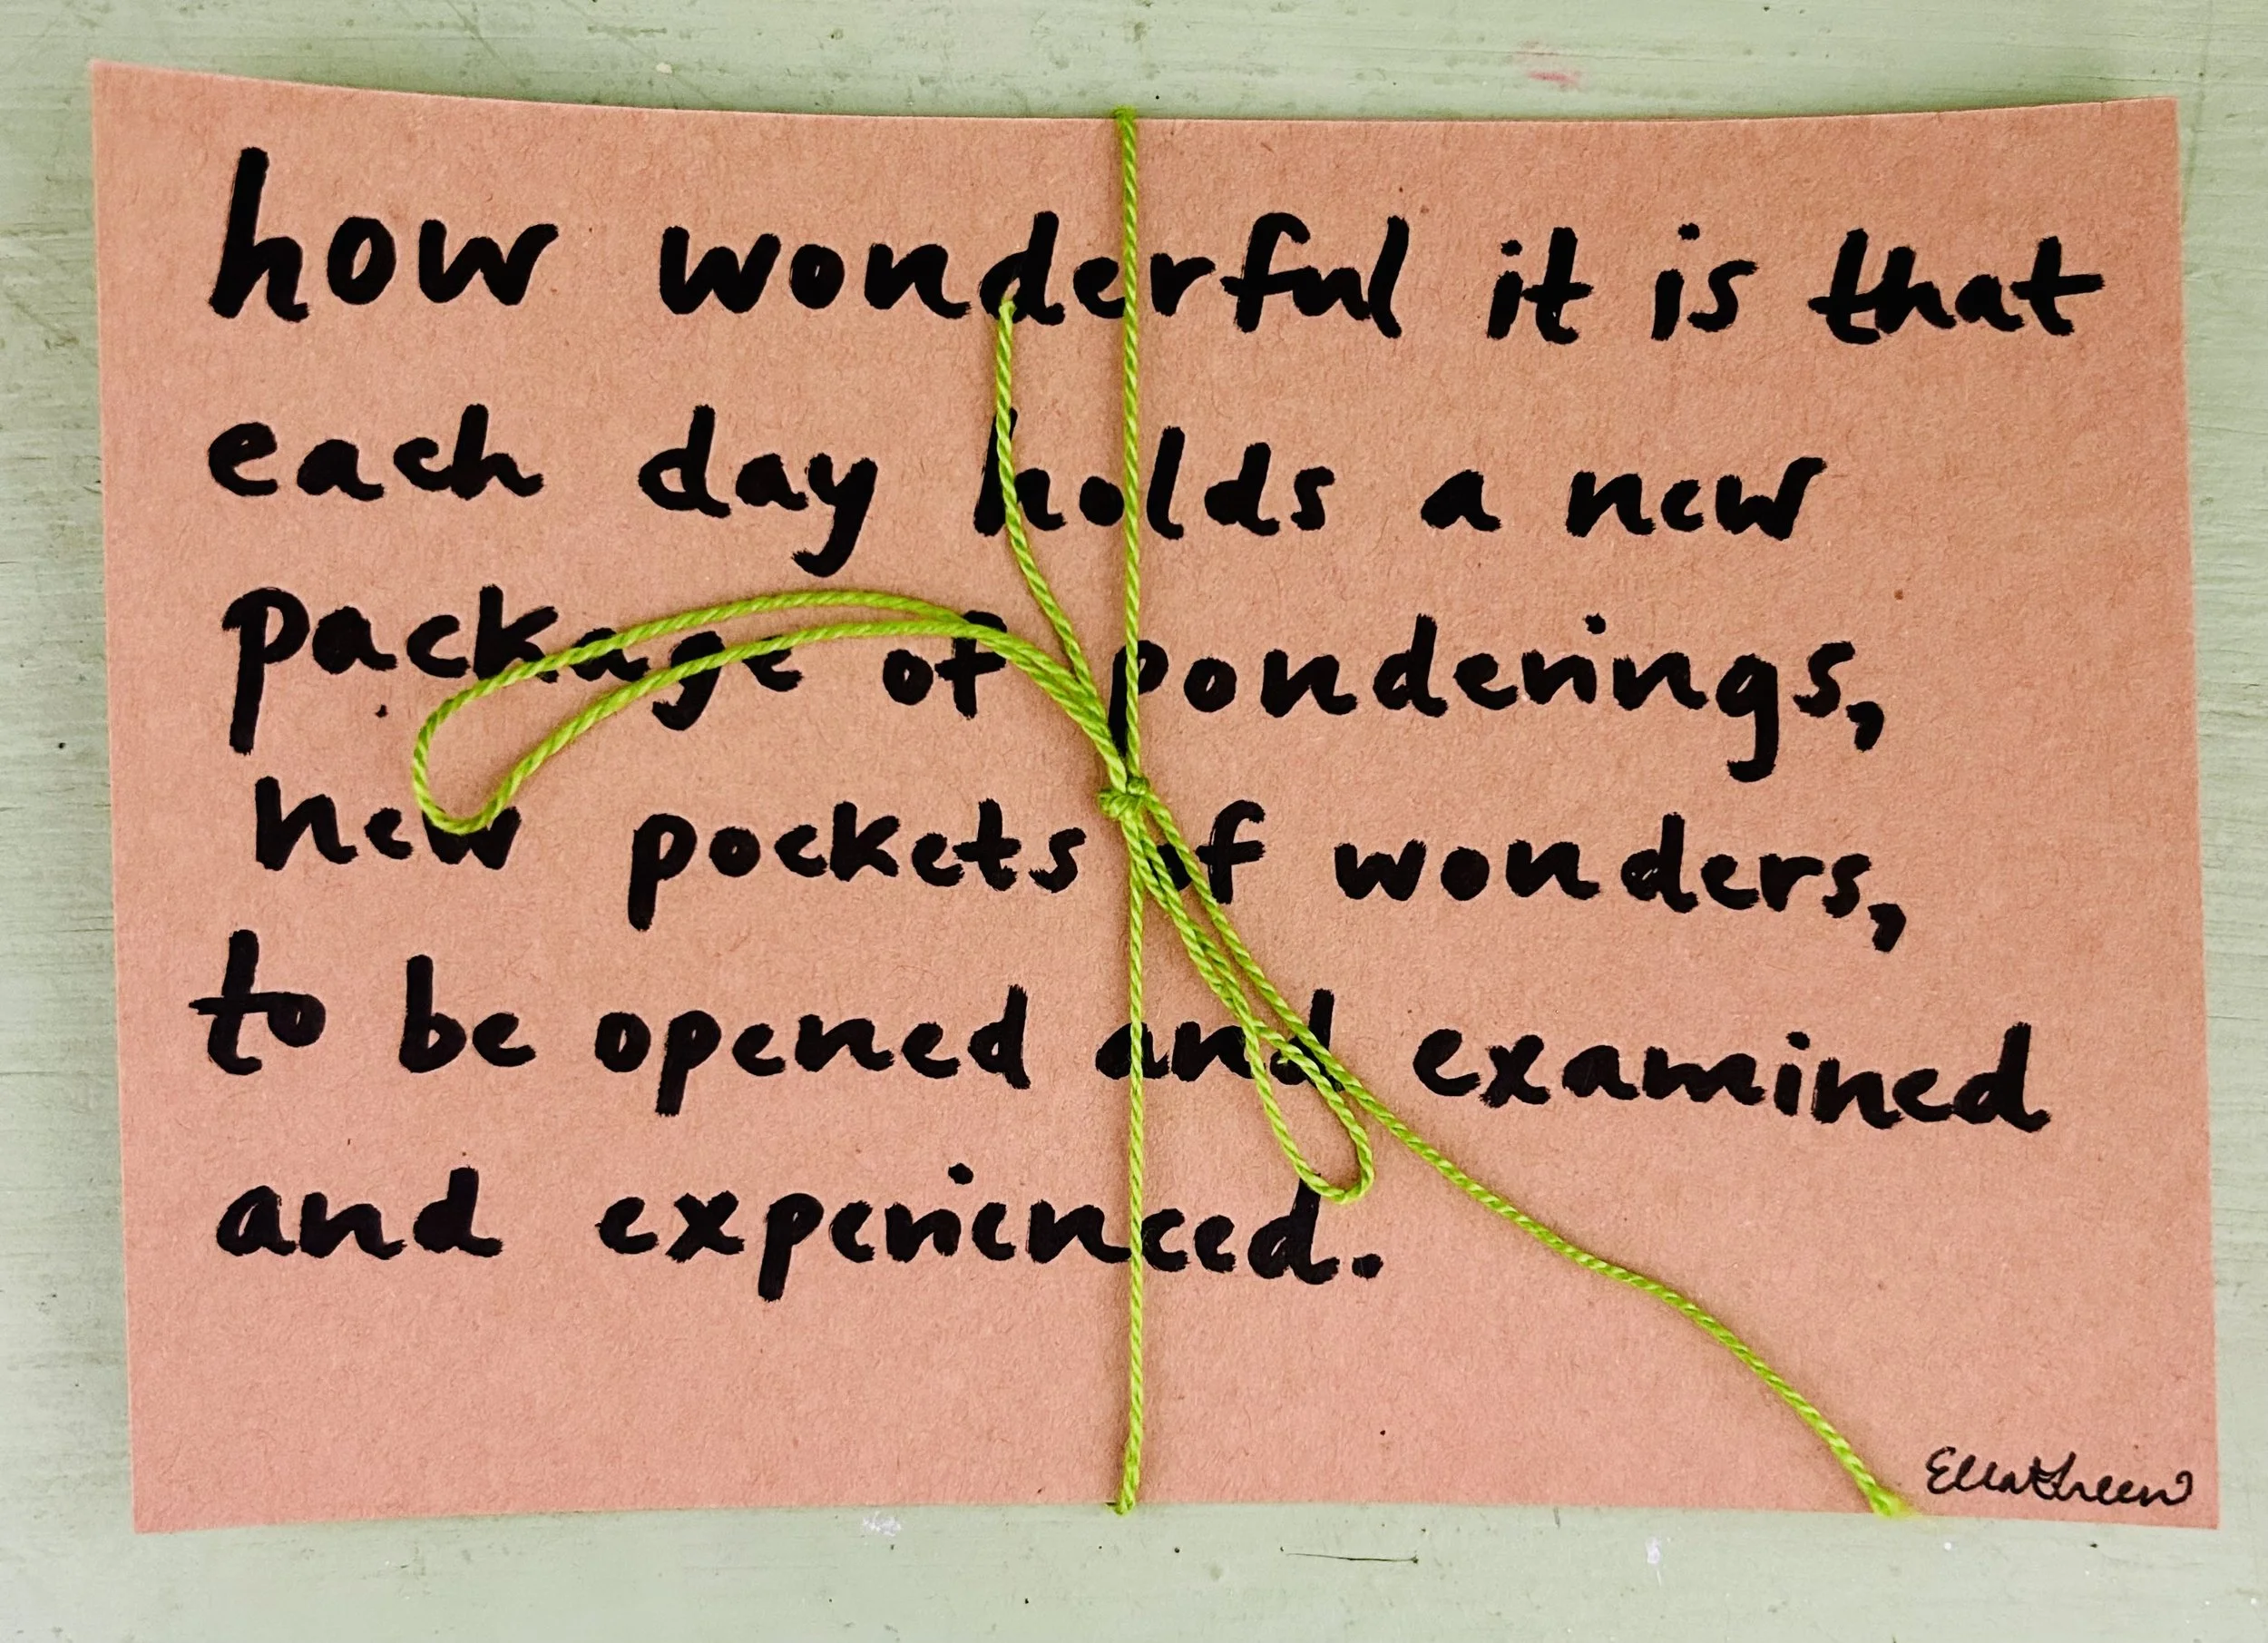 how wonderful it is that
each day holds a new
package of ponderings,
new pockets of wonders,
to be opened and examined
and experienced.